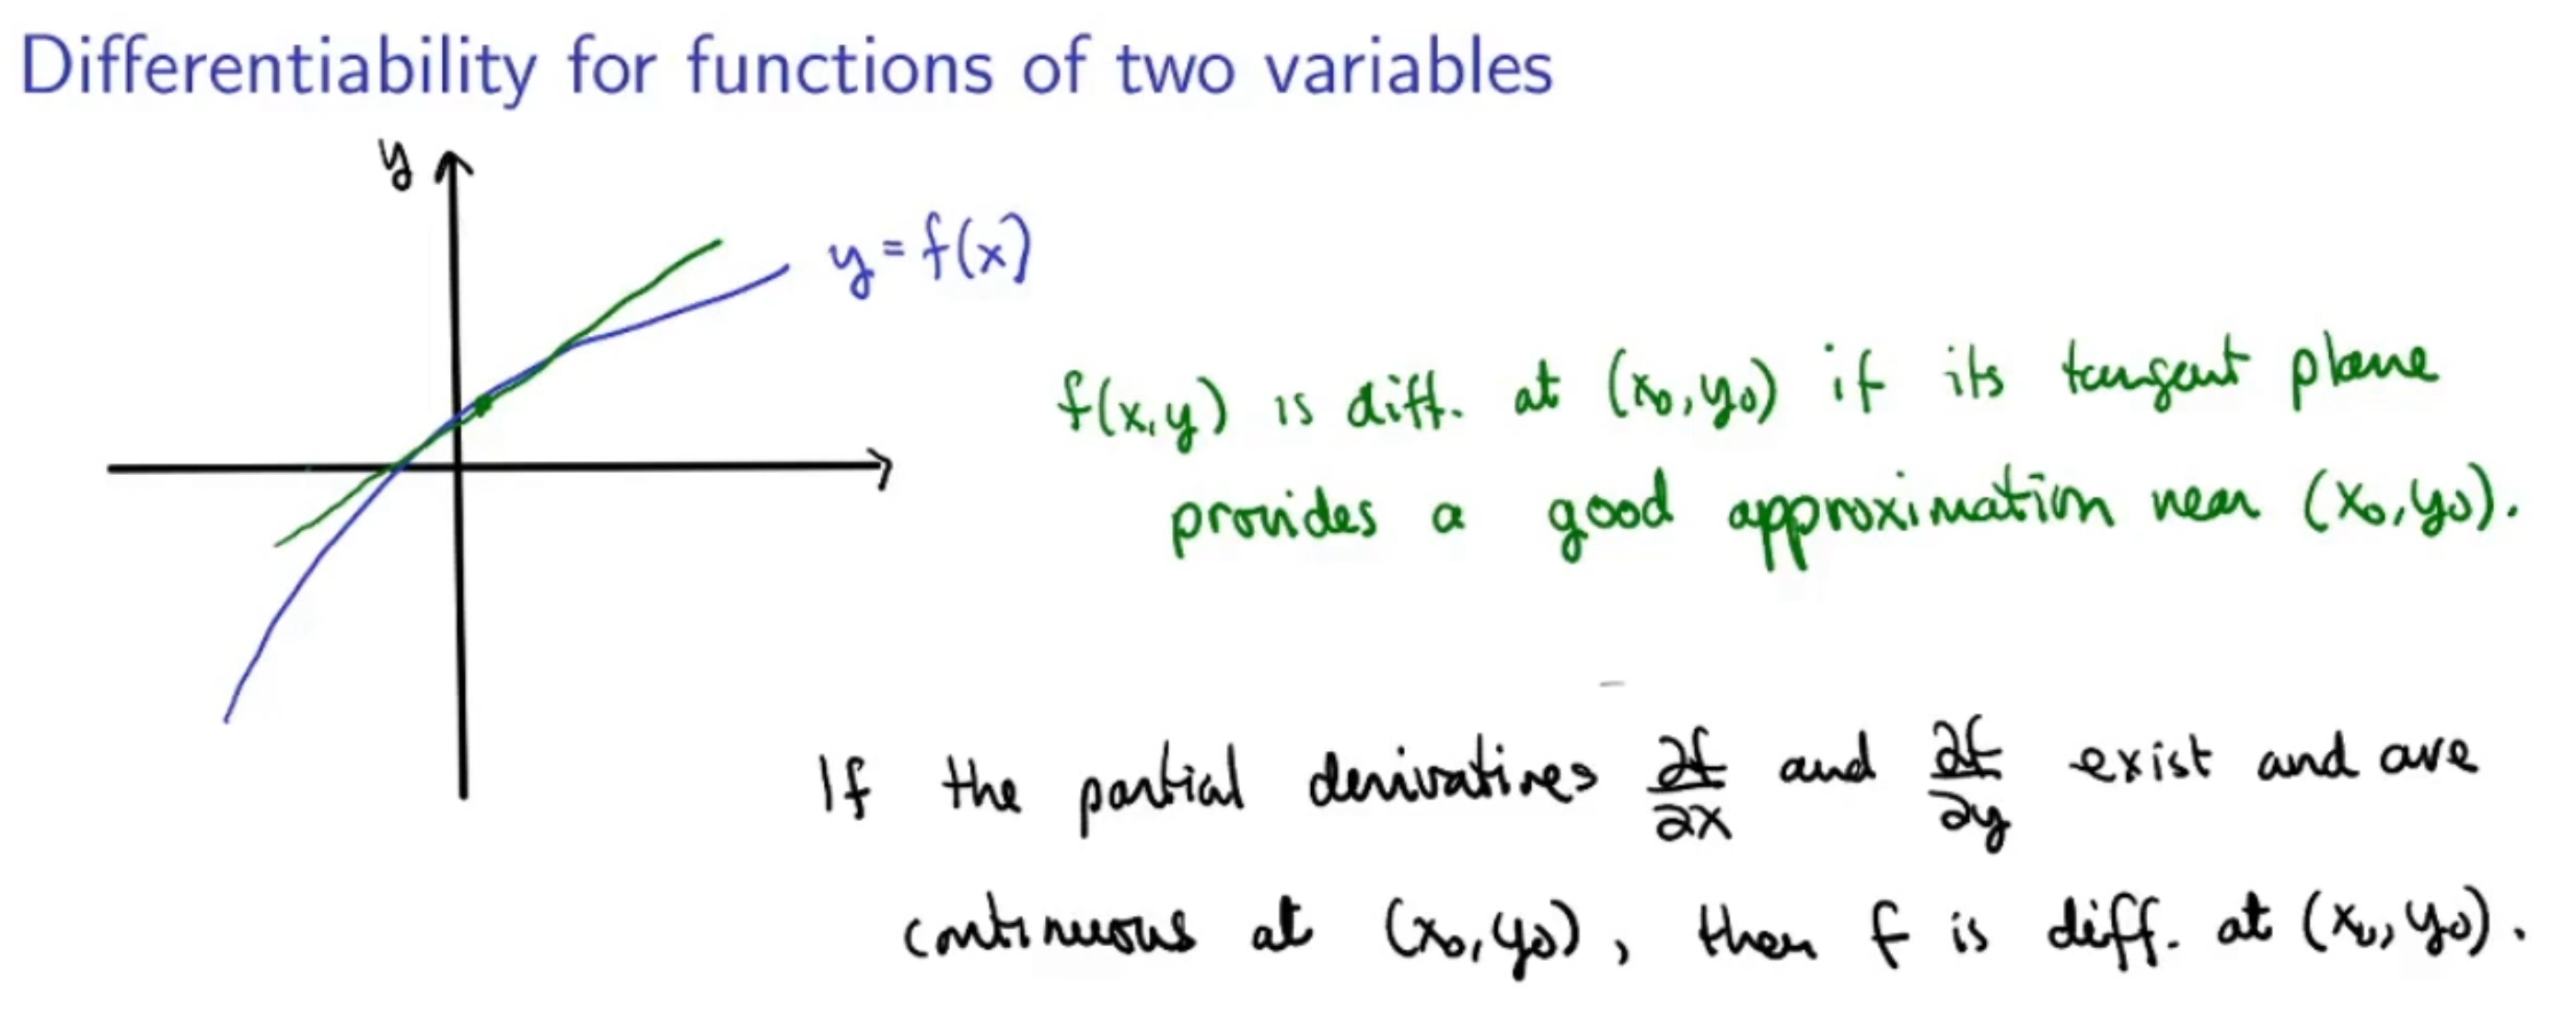 Differentiability for functions of two variables
y
y = f(x)
f(x,y) is diff. at (x₀,y₀) if its tangent plane
provides a good approximation near (x₀,y₀).
If the partial derivatives ∂f/∂x and ∂f/∂y exist and are
continuous at (x₀,y₀), then f is diff. at (x₀,y₀).